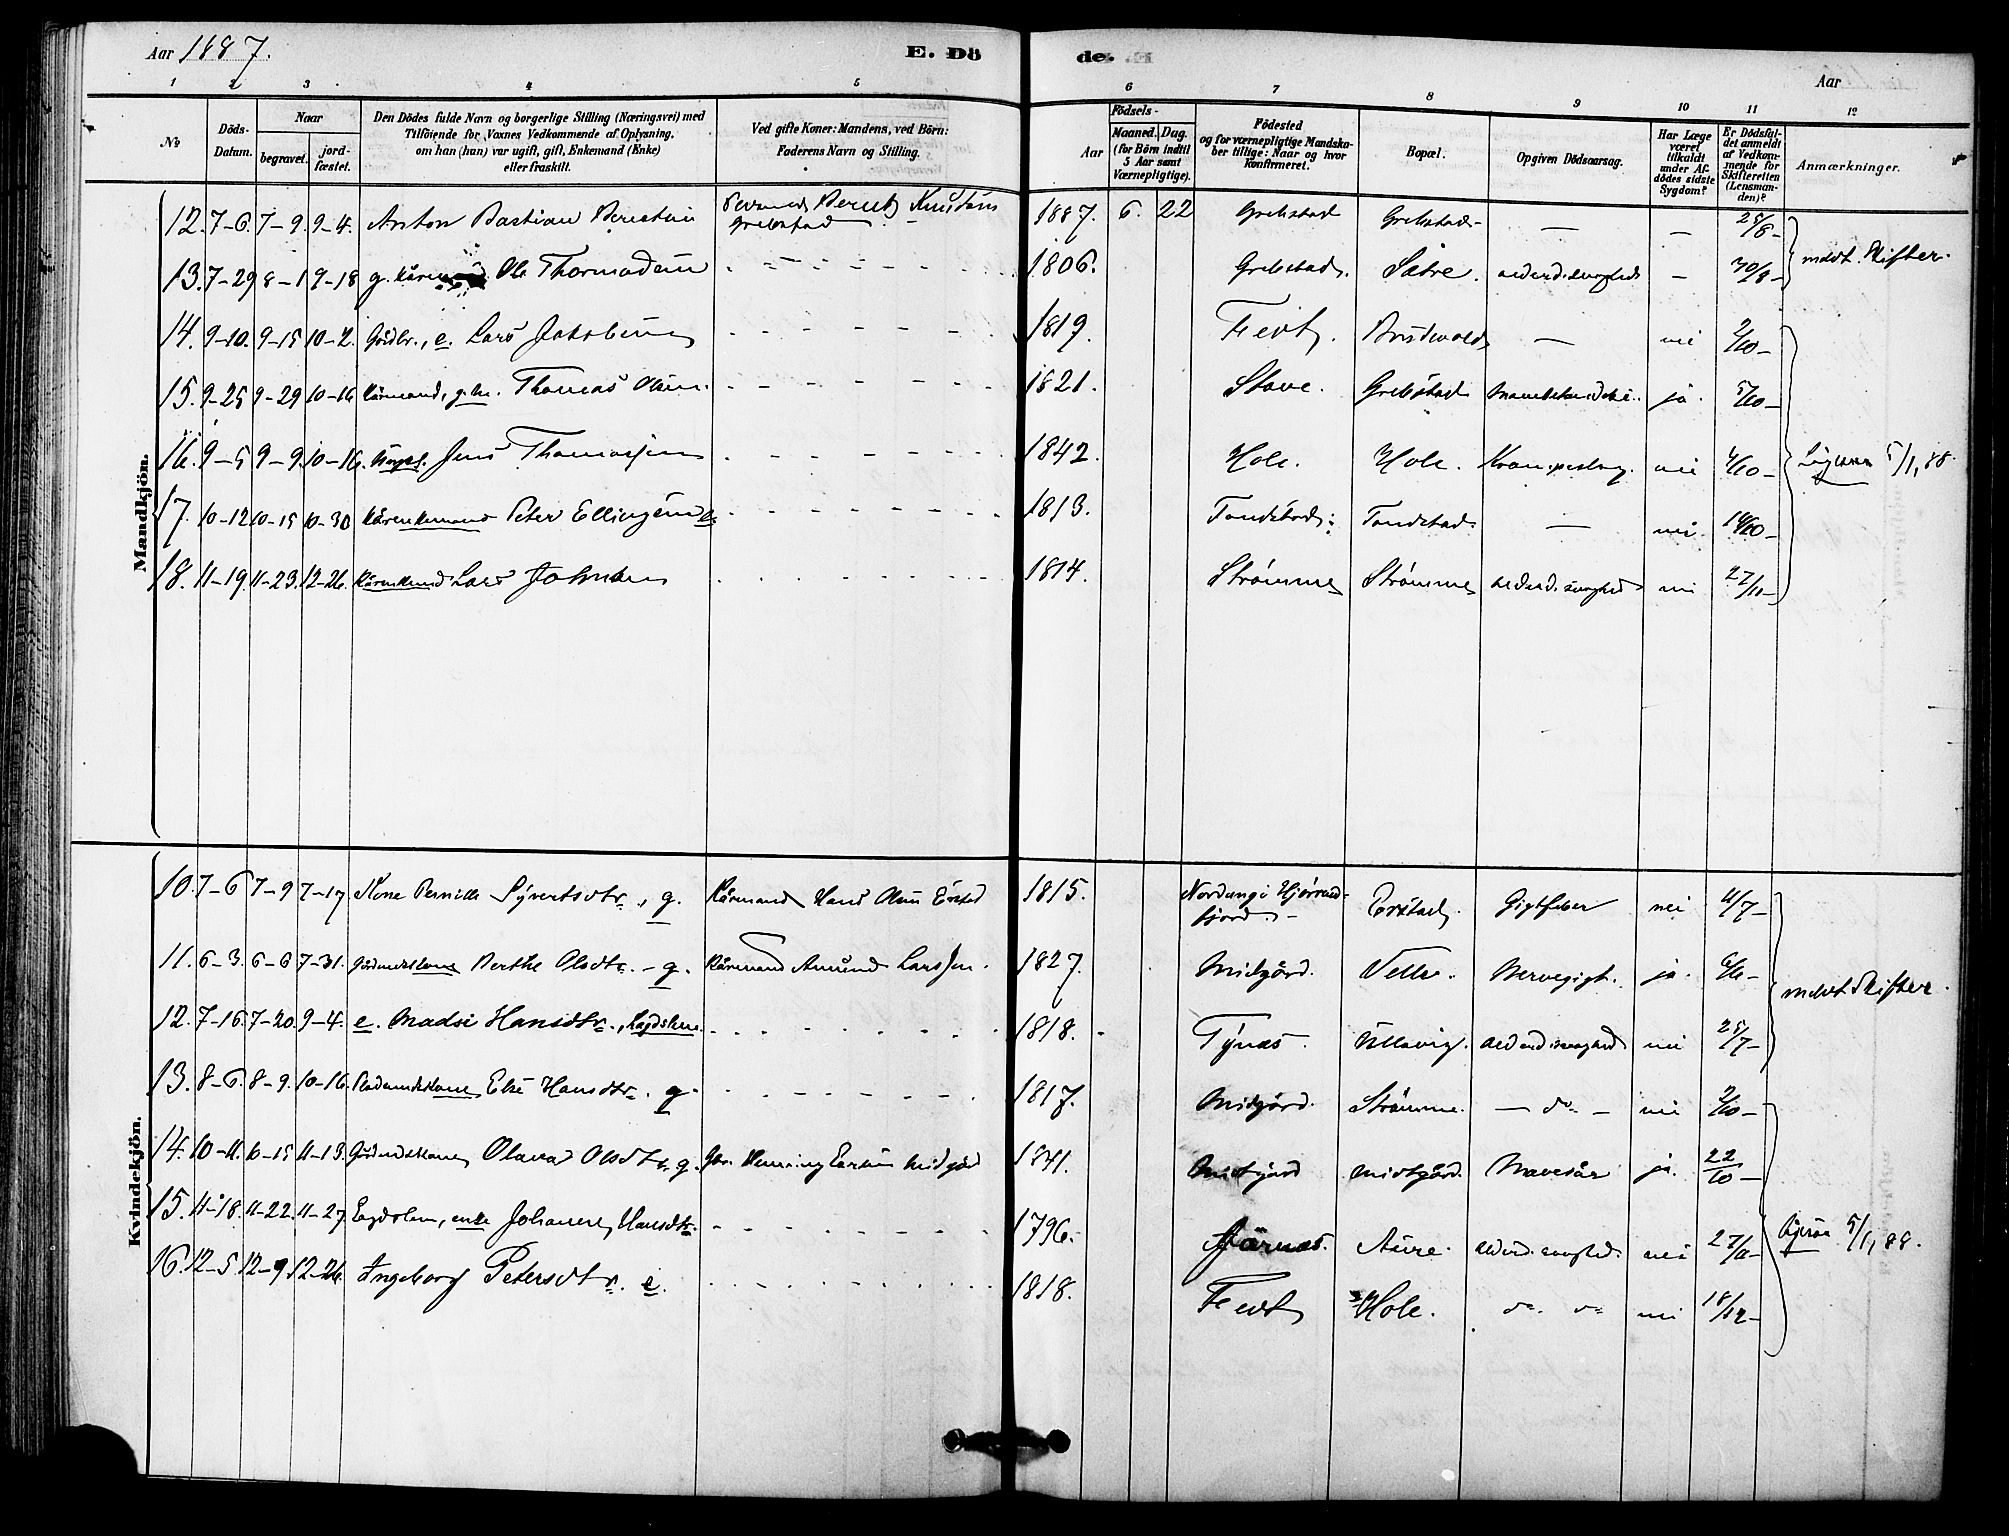 Aar 1887.
E. Dö
de.
Aar
1 2 3 4 5 6 7 8 9 10 11 12
№
Döds-
Datum.
Naar
begravet.
jord-
fæstet.
Den Dödes fulde Navn og borgerlige Stilling (Næringsvei) med
Tilföiende for Voxnes Vedkommende af Oplysning,
om han (hun) var ugift, gift, Enkemand (Enke)
eller fraskilt.
Ved gifte Koner: Mandens, ved Börn:
Faderens Navn og Stilling.
Aar
Födsels-
Maaned. Dag.
(for Börn indtil
5 Aar samt
Værnepligtige).
Födested
og for værnepligtige Mandska-
ber tillige: Naar og hvor
Konfirmeret.
Bopæl.
Opgiven Dödsaarsag.
Har Læge
været
tilkaldt
under Af-
dödes sidste
Sygdom?
Er Dödsfal-
det anmeldt
af Vedkom-
mende for
Skifteretten
(Lensman-
den)?
Anmærkninger.
Mandkjön.
12. 7-6. 7-9. 9-4. Anton Bastian Berntsen Berndt Knutsen 1887. 6. 22 Grebstad Grebstad - - 25/8-
Grebstad
13. 7-29 8-1 9-18 g. Ole Thormodsen 1806. Grebstad. Sætre. alderd.svaghed - 30/8- meldt. Skifter.
14. 9-10. 9-15 10-2. Gårdbr., e. Lars Jakobsen 1819. Fedt. - nei 2/10-
15. 9-25 9-29 10-16 Kårmand, Thomas Olsen. 1821. Stave. Grebstad ja. 5/10-
16. 9-5 9-9. 10-16. Jens Thomassen 1842. Hole. Hole. nei 4/10- 5/1,88.
17. 10-12 10-15 10-30 Kårenkemand Peter Ellingsen 1813. Tandstad. Tandstad. - nei 14/10-
18. 11-19. 11-23. 12-26. Lars Johnsen 1814. Strømme Strømme alderd.svaghed nei 27/11-
Kvindekjön.
10. 7-6 7-9 7-17 Kone Pernille Syvertsdtr., g. Kårmand Hans Olsen Erstad 1815. Nordang i Hjørund-
fjord. - Erstad. Gigtfeber nei 11/7-
11. 6-3. 6-6 7-31. Berthe Olsdtr. - g. Kårmand Amund Larssen. 1827. Midgård. Velle. Nervegigt. ja. 6/6- meldt Skifter.
12. 7-16. 7-20. 9-4. e. Madsi Hansdtr., 1818. Tynes. alderd.svaghed nei 25/7-
13. 8-6. 8-9. 10-16. Else Hansdtr. g. 1817. Midgård. Strømme. - do - nei 2/10-
14. 10-11. 10-15 11-13. Olava Olsdtr. g. Gbr. Henning Larsen Midgård 1841. Midtgård Midtgård. Mavesår ja. 22/10-
15. 11-18. 11-22. 11-27. enke Johanne Hansdtr. 1796. Aure. alderd.svaghed. nei 27/11- 5/1,88.
16. 12-5 12-9 12-26. Ingeborg Petersdtr. e. 1818. Fedt Hole. do. do nei 18/12-